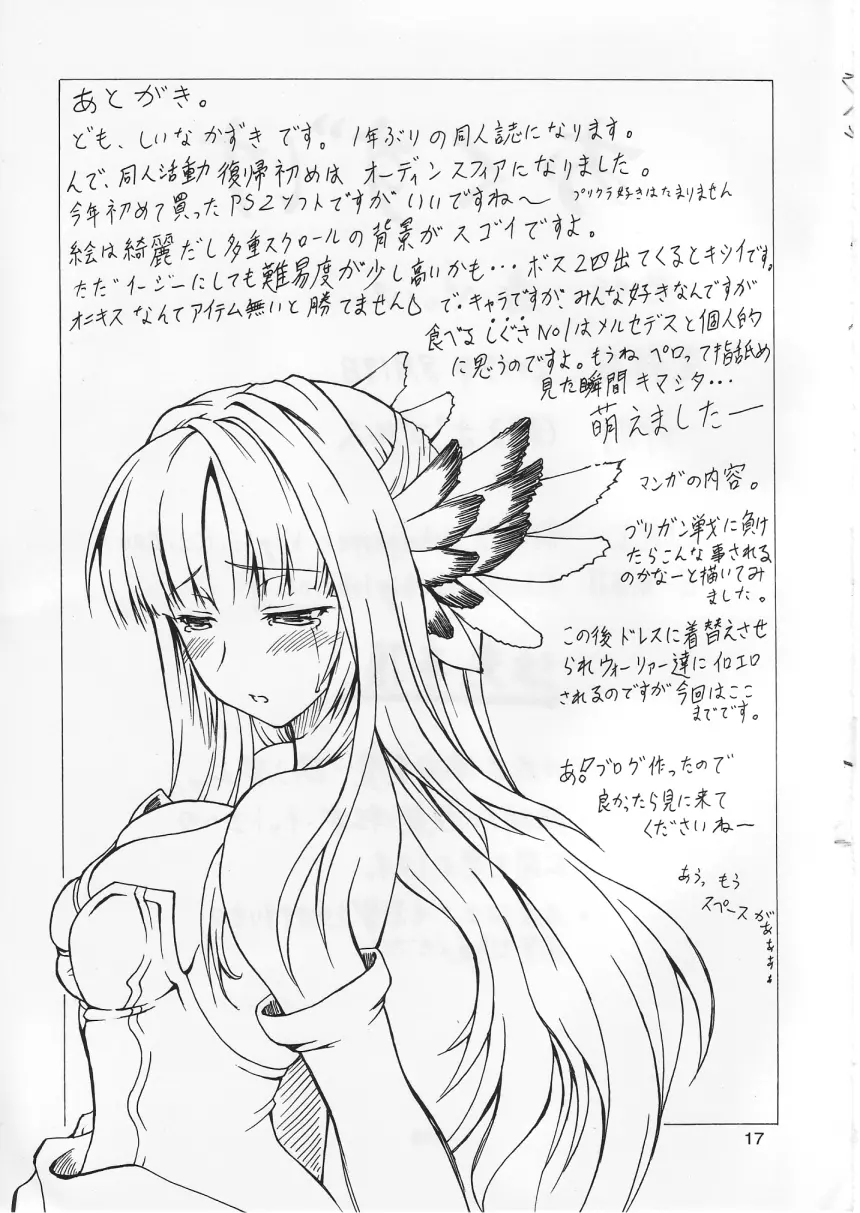 あとがき。
ども、しいなかずきです。1年ぶりの同人誌になります。
んで、同人活動復帰初めは オーディンスフィアになりました。
今年初めて買ったPS2ソフトですがいいですね〜 プリクラ好きはたまりません
絵は綺麗だし多重スクロールの背景がスゴイですよ。
ただイージーにしても難易度が少し高いかも・・・ボス2匹出てくるとキツイです。
オニキスなんてアイテム無いと勝てません で、キャラですが、みんな好きなんですが
食べるしぐさNo1はメルセデスと個人的
に思うのですよ。もうね ペロって指舐め
見た瞬間キマシタ・・・
萌えましたー
マンガの内容。
ブリガン戦に負け
たらこんな事される
のかなーと描いてみ
ました。
この後ドレスに着替えさせ
られウォーリァー達にイロエロ
されるのですが今回はここ
までです。
あ!ブログ作ったので
良かったら見に来て
くださいねー
あぅ、もう
スペースがぁぁぁぁ
17